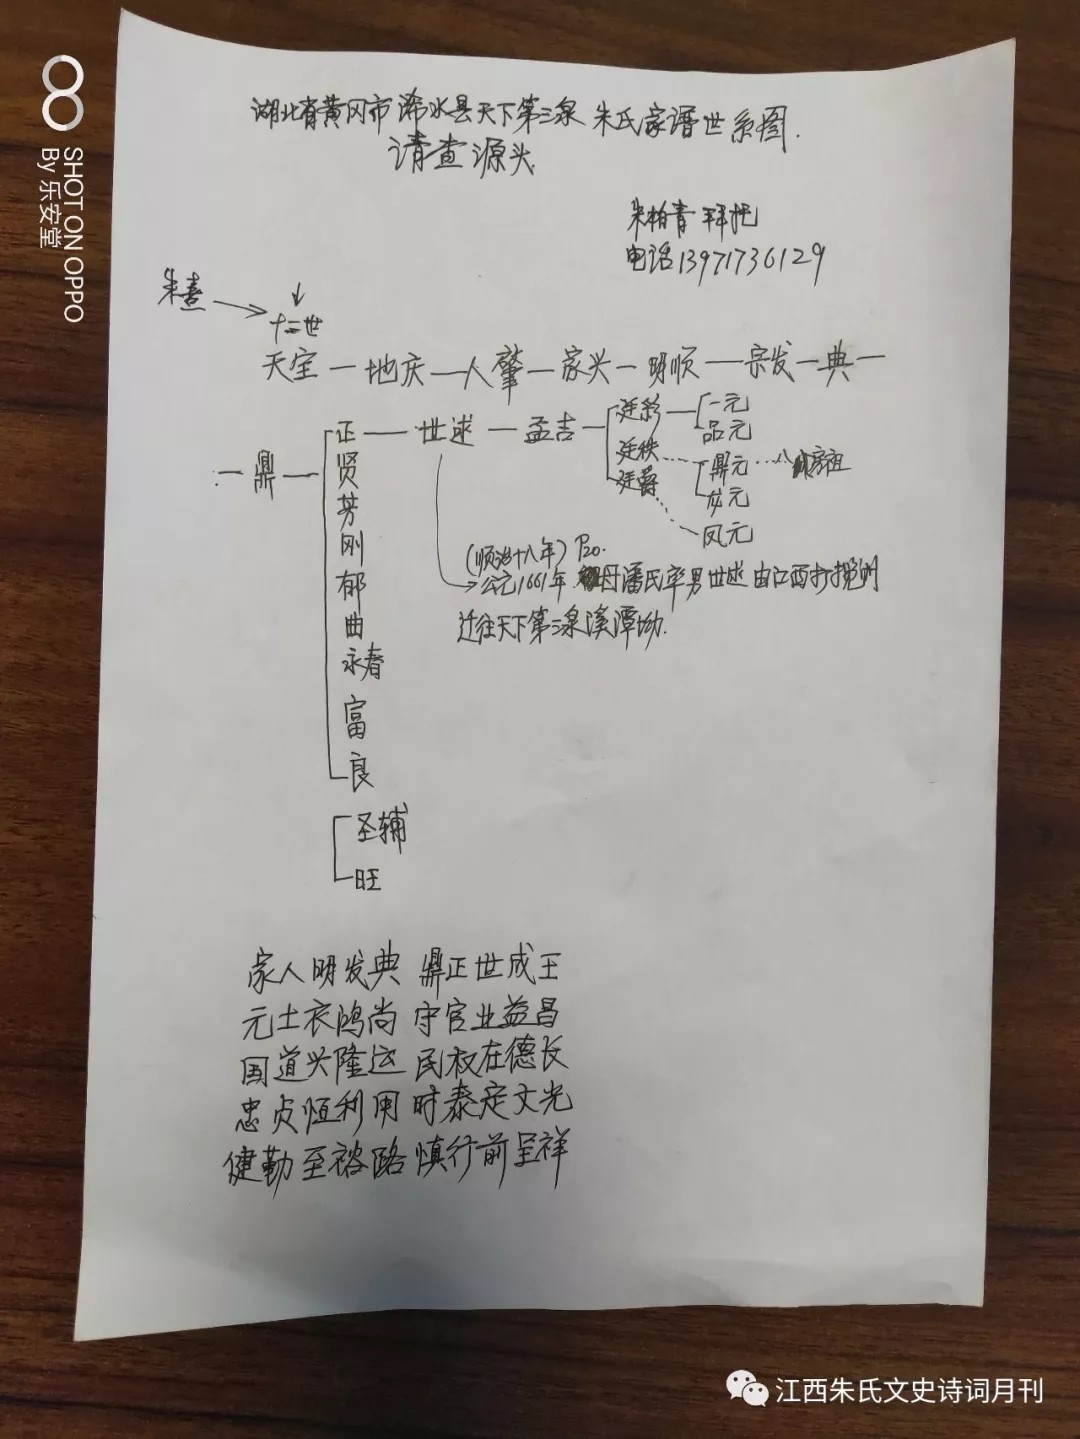 湖北省黄冈市浠水县天下第三泉朱氏家谱世系图.
请查源头
朱柏青 拜托
电话13971736129
朱熹
十二世
天宝一地庆一人肇一家兴一明顺一宗发一典一
一鼎一
正一世逑一孟吉
贤
芳
刚
郁
曲
永春
富
良
圣辅
旺
廷彩
廷秩
廷爵
一元
品元
鼎元
元
凤元
(顺治十八年) P20.
公元1661年 母潘氏率男世逑 由江西
迁往天下第三泉溪潭坳.
家人明发典 鼎正世成王
元士衣鸿尚 守官业益昌
国道兴隆运 民权在德长
忠贞恒利用 时泰定文光
健勤至裕路 慎行前呈祥
SHOT ON OPPO
By 乐安堂
江西朱氏文史诗词月刊